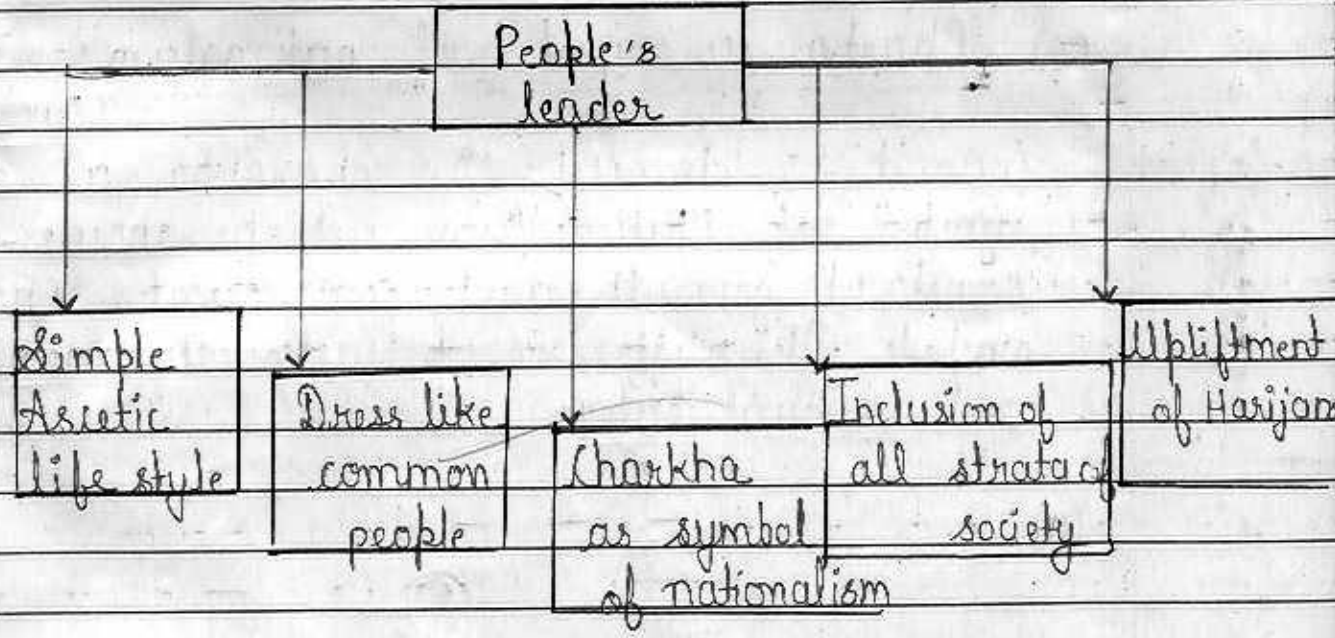 People's
leader
Simple
Ascetic
life style
Dress like
common
people
Charkha
as symbol
of nationalism
Inclusion of
all strata of
society
Upliftment
of Harijan